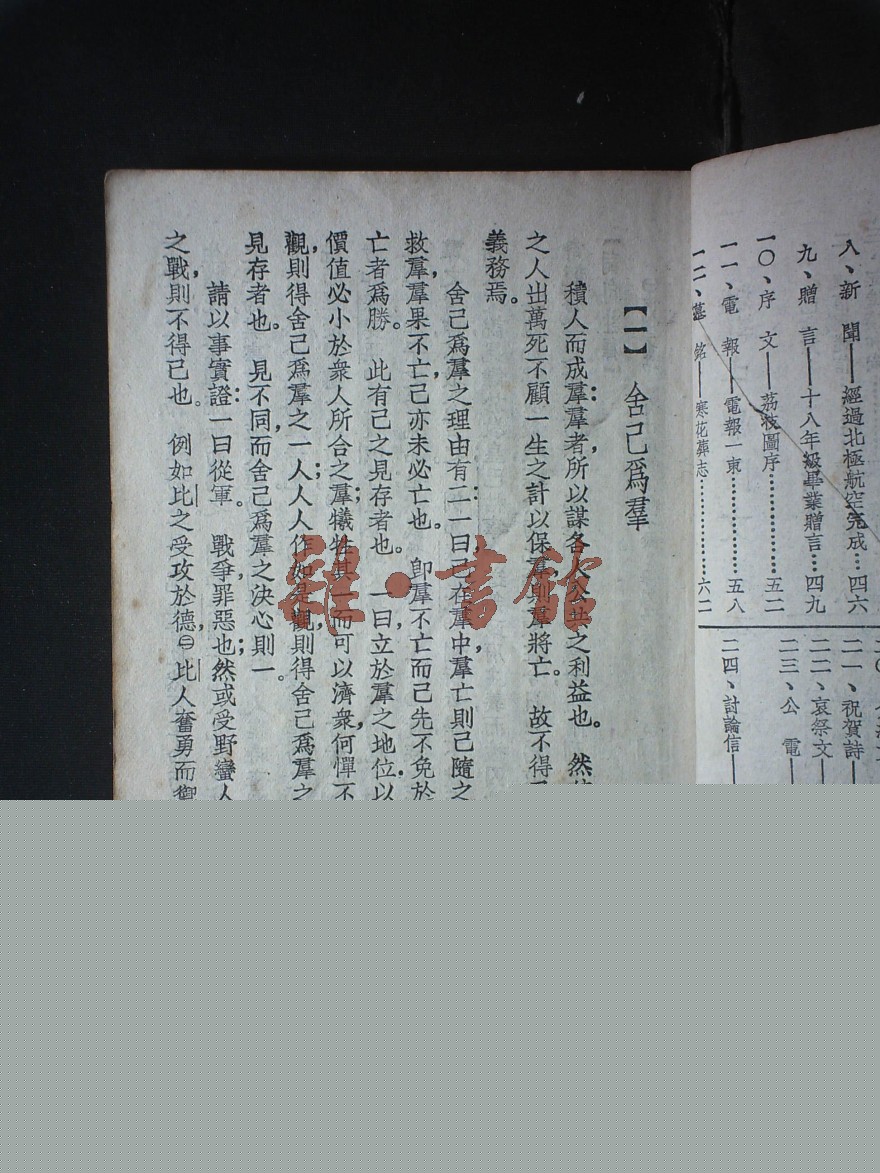 八、新聞——經過北極航空完成…四六
九、贈言——十八年級畢業贈言…四九
一〇、序文——荔枝圖序…………五二
一一、電報——電報一束…………五八
一二、墓銘——寒花葬志…………六二
二一、祝賀詩—
二二、哀祭文—
二三、公電—
二四、討論信—
【一】 舍己爲羣
積人而成羣：羣者，所以謀各人公共之利益也。 然
之人出萬死不顧一生之計以保羣，則羣將亡。 故不得
義務焉。
舍己爲羣之理由有二：一曰，己在羣中，羣亡則己隨之
救羣，羣果不亡，己亦未必亡也。 卽羣不亡，而己先不免於
亡者爲勝。 此有己之見存者也。 一曰，立於羣之地位，以
價値必小於衆人所合之羣；犧牲其一而可以濟衆，何憚不
觀，則得舍己爲羣之一人；人人作如是觀，則得舍己爲羣之
見存者也。 見不同，而舍己爲羣之決心則一。
請以事實證：一曰從軍。 戰爭，罪惡也；然或受野蠻人
之戰，則不得已也。 例如比之受攻於德㊁，比人奮勇而禦